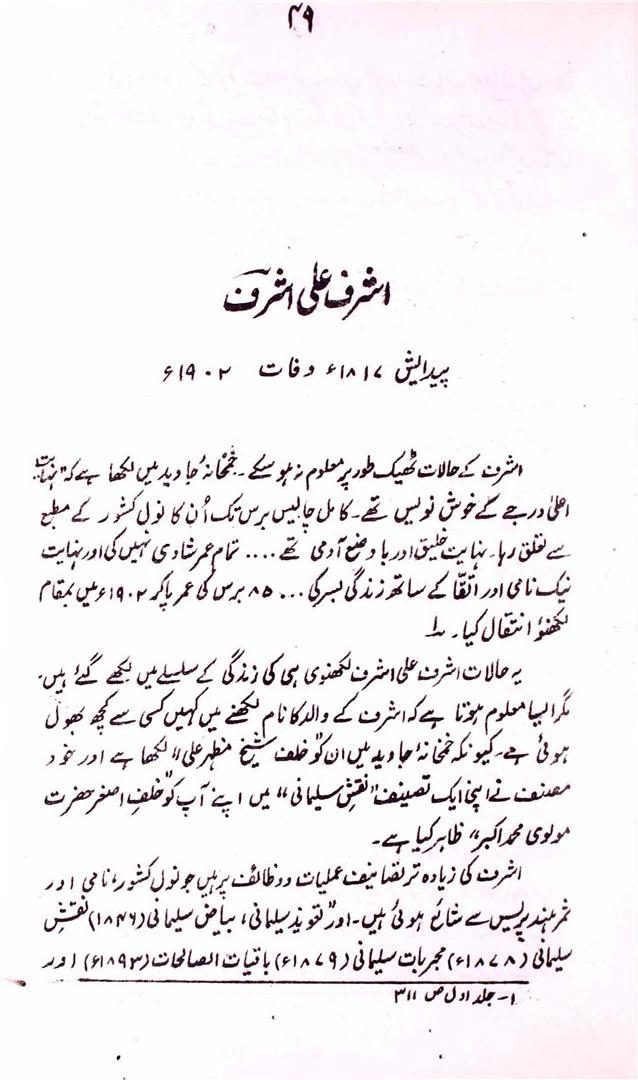 ۴۹
اشرف علی اشرفؔ
پیدایش ۱۸۱۷ء وفات ۱۹۰۲ء
اشرف کے حالات ٹھیک طور پر معلوم نہ ہو سکے۔ خمخانۂ جاوید میں لکھا ہے کہ "نہایت
اعلیٰ درجے کے خوش نویس تھے۔ کامل چالیس برس تک اُن کا نول کشور کے مطبع
سے تعلق رہا۔ نہایت خلیق اور با وضع آدمی تھے .... تمام عمر شادی نہیں کی اور نہایت
نیک نامی اور اتقا کے ساتھ زندگی بسر کی ... ۸۵ برس کی عمر پا کر ۱۹۰۲ء میں بمقام
لکھنؤ انتقال کیا۔ ۱
یہ حالات اشرف علی اشرف لکھنوی ہی کی زندگی کے سلسلے میں لکھے گئے ہیں۔
مگر ایسا معلوم ہوتا ہے کہ اشرف کے والد کا نام لکھنے میں کہیں کسی سے کچھ بھول
ہوئی ہے۔ کیونکہ خمخانۂ جاوید میں ان کو "خلف شیخ مظہر علی" لکھا ہے اور خود
مصنف نے اپنی ایک تصنیف "نقش سلیمانی" میں اپنے آپ کو "خلف اصغر حضرت
مولوی محمد اکبر" ظاہر کیا ہے۔
اشرف کی زیادہ تر تصانیف عملیات و وظائف پر ہیں جو نول کشور، نامی اور
ثمر ہند پریس سے شائع ہوئی ہیں۔ اور "تعویذ سلیمانی، بیاض سلیمانی (۱۸۴۶) نقش
سلیمانی (۱۸۷۸ء) مجربات سلیمانی (۱۸۷۹ء) باقیات الصالحات (۱۸۹۳ء) اور
۱- جلد اول ص ۳۱۱